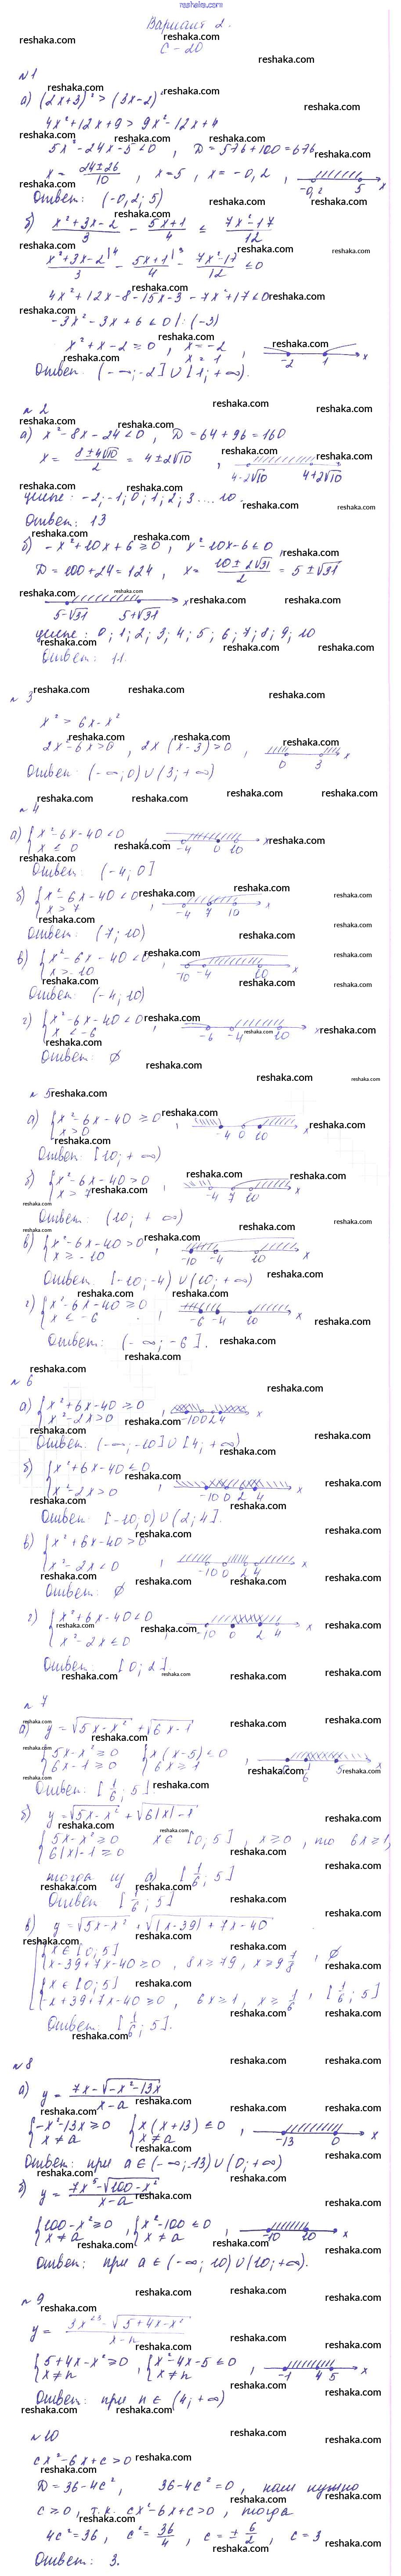 reshaka.com
Вариант 2.
С - 20
№1
а) (2x+3)² > (3x-2)²
4x²+12x+9 > 9x²-12x+4
5x²-24x-5<0 , D = 576+100=676
x = (24±26)/10 , x=5 , x = -0,2 , -0,2 5 x
Ответ: (-0,2; 5)
б) (x²+3x-2)/3 - (5x+1)/4 ≤ (7x²-17)/12
(x²+3x-2)/3 |4 - (5x+1)/4 |3 - (7x²-17)/12 ≤0
4x²+12x-8-15x-3-7x²+17≤0
-3x²-3x+6≤0 |:(-3)
x²+x-2≥0 , x=-2
x=1 , -2 1 x
Ответ: (-∞;-2]∪[1;+∞).
№2
а) x²-8x-24<0 , D=64+96=160
x = (8±4√10)/2 = 4±2√10 , 4-2√10 4+2√10
целые: -2;-1;0;1;2;3....10.
Ответ: 13
б) -x²+10x+6≥0 , x²-10x-6≤0
D=100+24=124 , x = (10±2√31)/2 = 5±√31
5-√31 5+√31 x
целые: 0;1;2;3;4;5;6;7;8;9;10
Ответ: 11
№3
x² > 6x-x²
2x²-6x>0 , 2x(x-3)>0 , 0 3 x
Ответ: (-∞;0)∪(3;+∞)
№4
а) {x²-6x-40<0
x≤0 , -4 0 10 x
Ответ: (-4;0]
б) {x²-6x-40<0
x>7 , -4 7 10 x
Ответ: (7;10)
в) {x²-6x-40<0
x>-10 , -10 -4 10 x
Ответ: (-4;10)
г) {x²-6x-40<0
x<-6 , -6 -4 10 x
Ответ: ∅
№5
а) {x²-6x-40≥0
x>0 , -4 0 10 x
Ответ: [10;+∞)
б) {x²-6x-40>0
x>7 , -4 7 10 x
Ответ: (10;+∞)
в) {x²-6x-40>0
x≥-10 , -10 -4 10 x
Ответ: [-10;-4)∪(10;+∞)
г) {x²-6x-40≥0
x<-6 , -6 -4 10 x
Ответ: (-∞;-6].
№6
а) {x²+6x-40≥0
x²-2x>0 , -10 0 2 4 x
Ответ: (-∞;-10]∪[4;+∞)
б) {x²+6x-40≤0
x²-2x>0 , -10 0 2 4 x
Ответ: [-10;0)∪(2;4].
в) {x²+6x-40>0
x²-2x<0 , -10 0 2 4 x
Ответ: ∅
г) {x²+6x-40<0
x²-2x≤0 , -10 0 2 4 x
Ответ: [0;2].
№7
а) y=√(5x-x²) + √(6x-1)
{5x-x²≥0
6x-1≥0 {x(x-5)≤0
6x≥1 , 0 1/6 5 x
Ответ: [1/6; 5].
б) y=√(5x-x²) + √(6|x|-1)
{5x-x²≥0
6|x|-1≥0 x∈[0;5] , x≥0 , то 6x≥1,
тогда из а) [1/6; 5]
Ответ: [1/6; 5]
в) y=√(5x-x²) + √(|x-39|+7x-40)
{x∈[0;5]
x-39+7x-40≥0 , 8x≥79 , x≥9 7/8 , ∅
{x∈[0;5]
-x+39+7x-40≥0 , 6x≥1, x≥1/6 , [1/6; 5]
Ответ: [1/6; 5].
№8
а) y = (7x-√(-x²-13x))/(x-a)
{-x²-13x≥0
x≠a {x(x+13)≤0
x≠a , -13 0 x
Ответ: при a∈(-∞;-13)∪(0;+∞)
б) y = (7x⁵-√(100-x²))/(x-a)
{100-x²≥0
x≠a , {x²-100≤0
x≠a , -10 10 x
Ответ: при a∈(-∞;10)∪(10;+∞).
№9
y = (3x²³-√(5+4x-x²))/(x-n)
{5+4x-x²≥0
x≠n , {x²-4x-5≤0
x≠n , -1 4 5 x
Ответ: при n∈(4;+∞)
№10
cx²-6x+c>0
D=36-4c², 36-4c²=0, нам нужно
c≥0, т.к. cx²-6x+c>0, тогда
4c²=36, c²=36/4, c=±6/2, c=3
Ответ: 3.